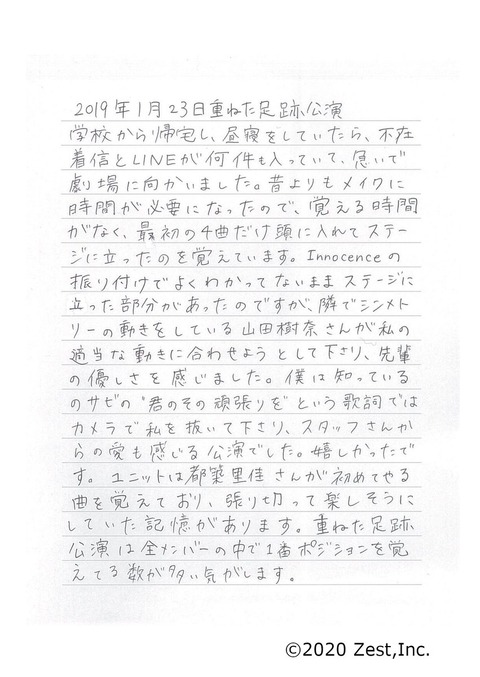 2019年1月23日重ねた足跡公演
学校から帰宅し、昼寝をしていたら、不在
着信とLINEが何件も入っていて、急いで
劇場に向かいました。昔よりもメイクに
時間が必要になったので、覚える時間
がなく、最初の4曲だけ頭に入れてステー
ジに立ったのを覚えています。Innocenceの
振り付けでよくわかってないままステージに
立った部分があったのですが、隣でシンメト
リーの動きをしている山田樹奈さんが私の
適当な動きに合わせようとして下さり、先輩
の優しさを感じました。僕は知っている
のサビの"君のその頑張りを"という歌詞では
カメラで私を抜いて下さり、スタッフさんか
らの愛も感じる公演でした。嬉しかったで
す。ユニットは都築里佳さんが初めてやる
曲を覚えており、張り切って楽しそうに
していた記憶があります。重ねた足跡
公演は全メンバーの中で1番ポジションを覚
えてる数が多い気がします。
©2020 Zest,Inc.